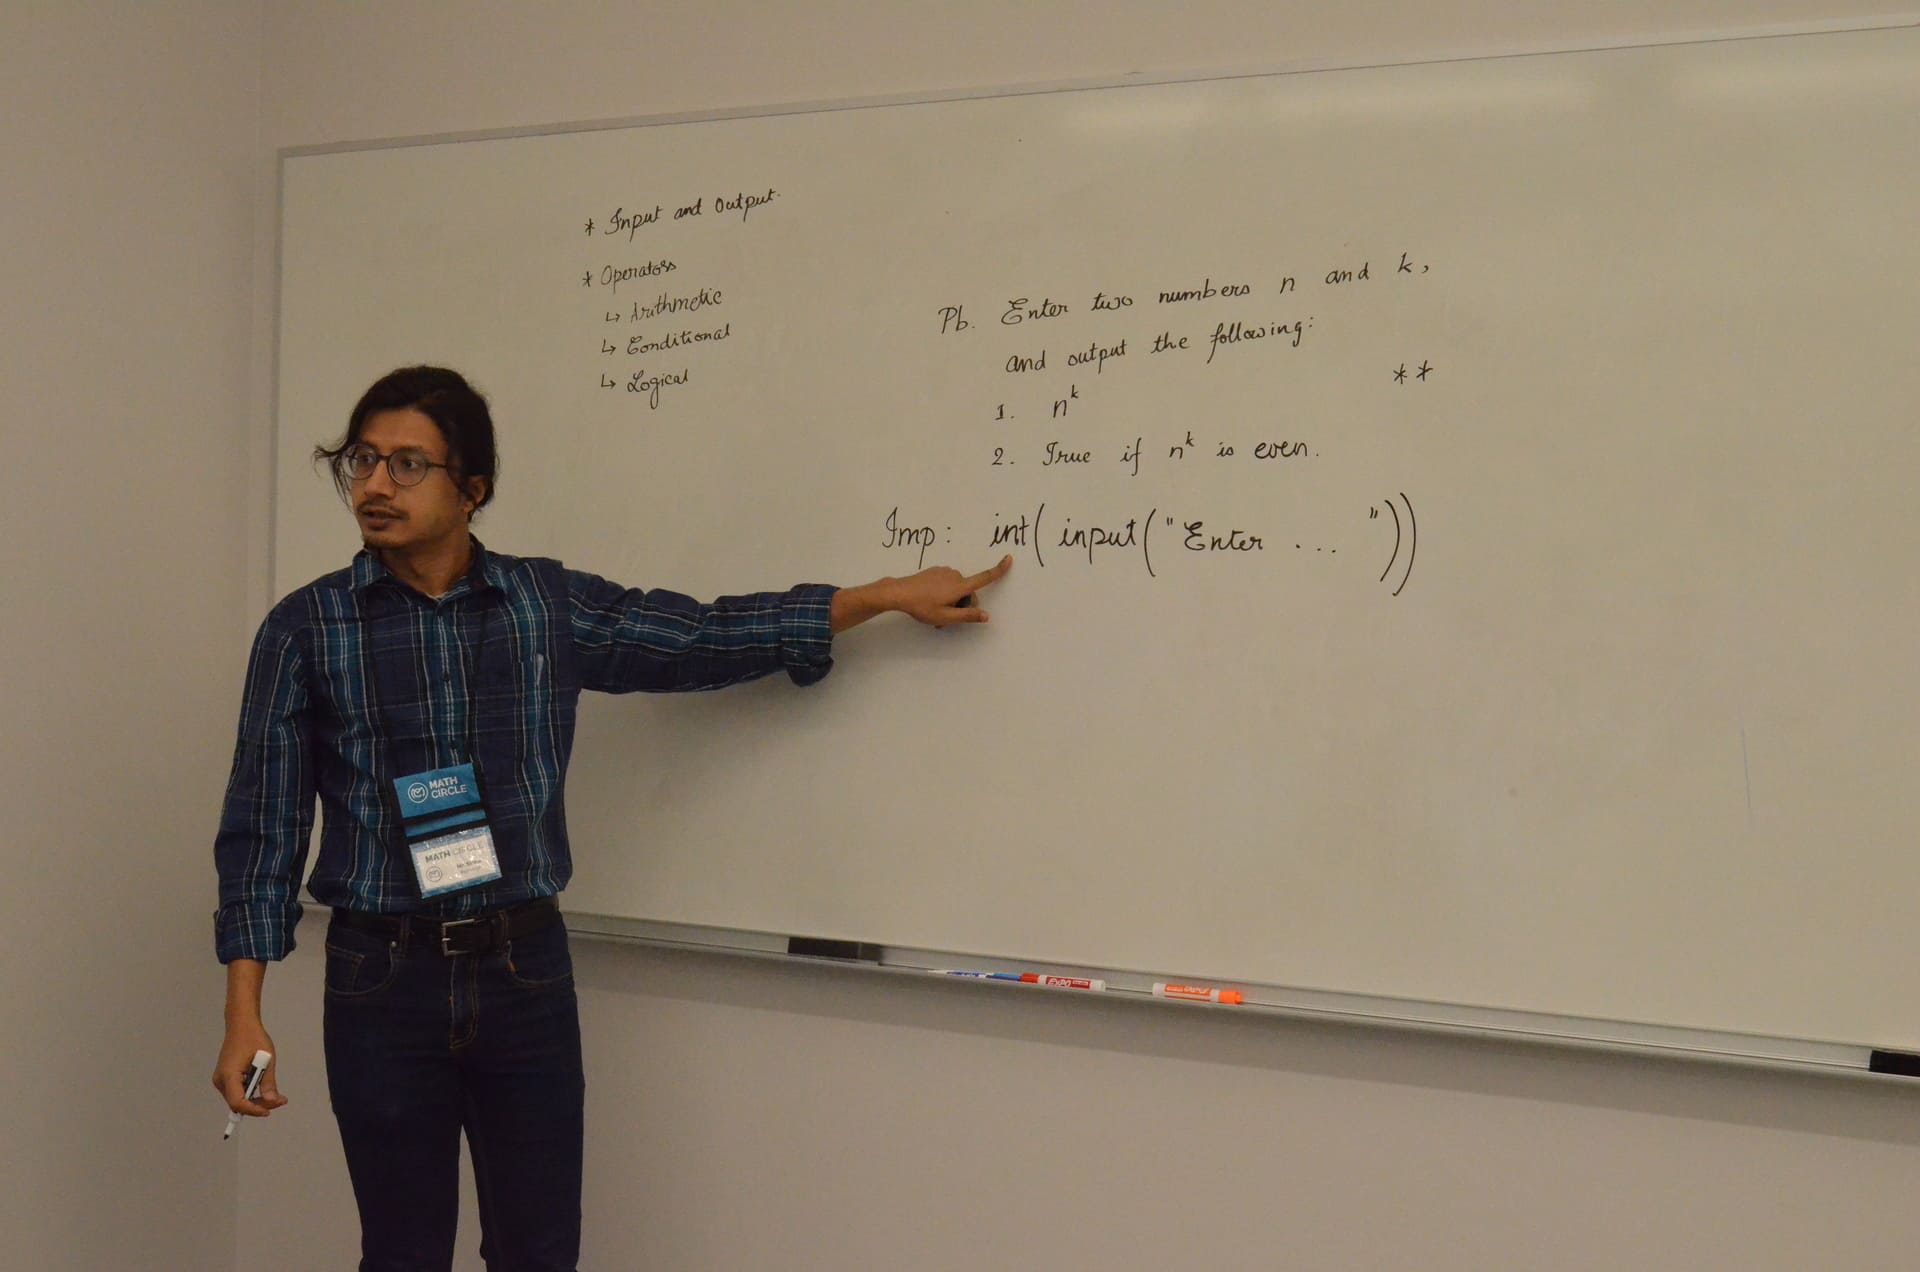 * Input and Output.
* Operators
↳ Arithmetic
↳ Conditional
↳ Logical
Pb. Enter two numbers n and k,
and output the following:
1. n^k
**
2. True if n^k is even.
Imp: int( input( "Enter ... "))
MATH
CIRCLE
MATH CIRCLE
EXPO
EXPO